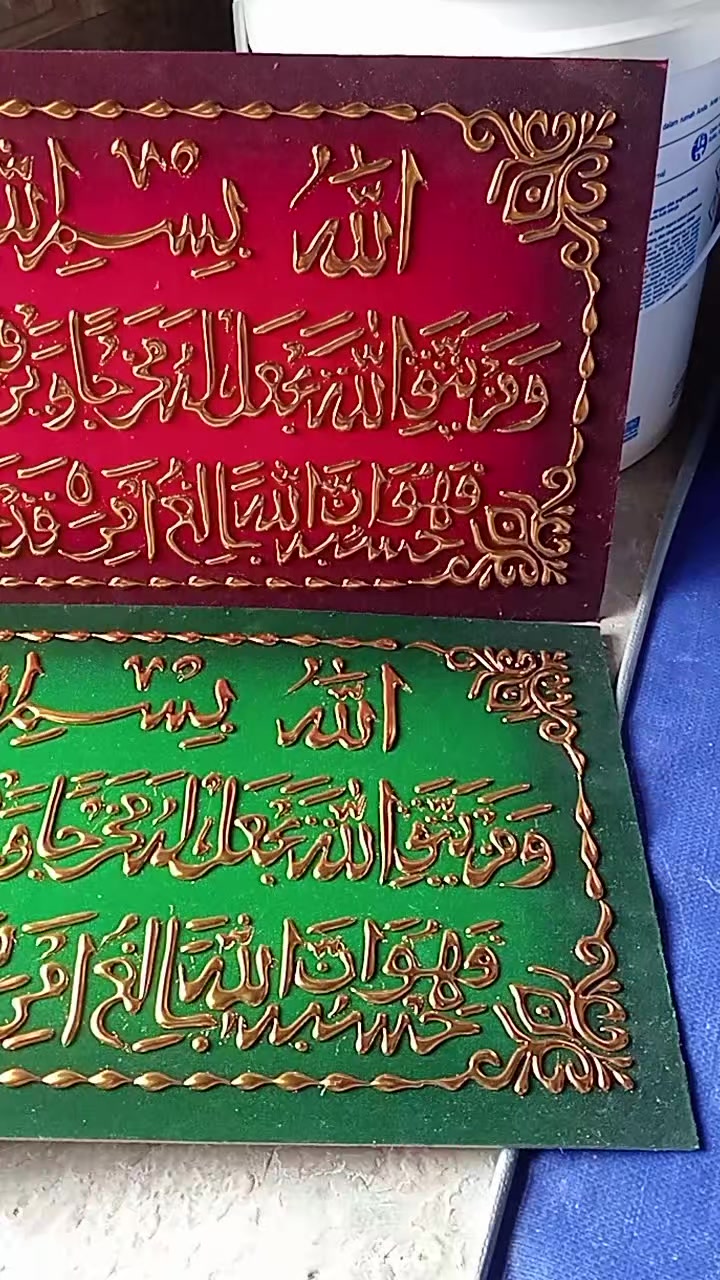 الله بسم
ومن يتق الله يجعل له مخرجا
فهو حسبه ان الله بالغ امره قد
الله بسم
ومن يتق الله يجعل له مخرجا
فهو حسبه ان الله بالغ امره
dalam rumah Anda